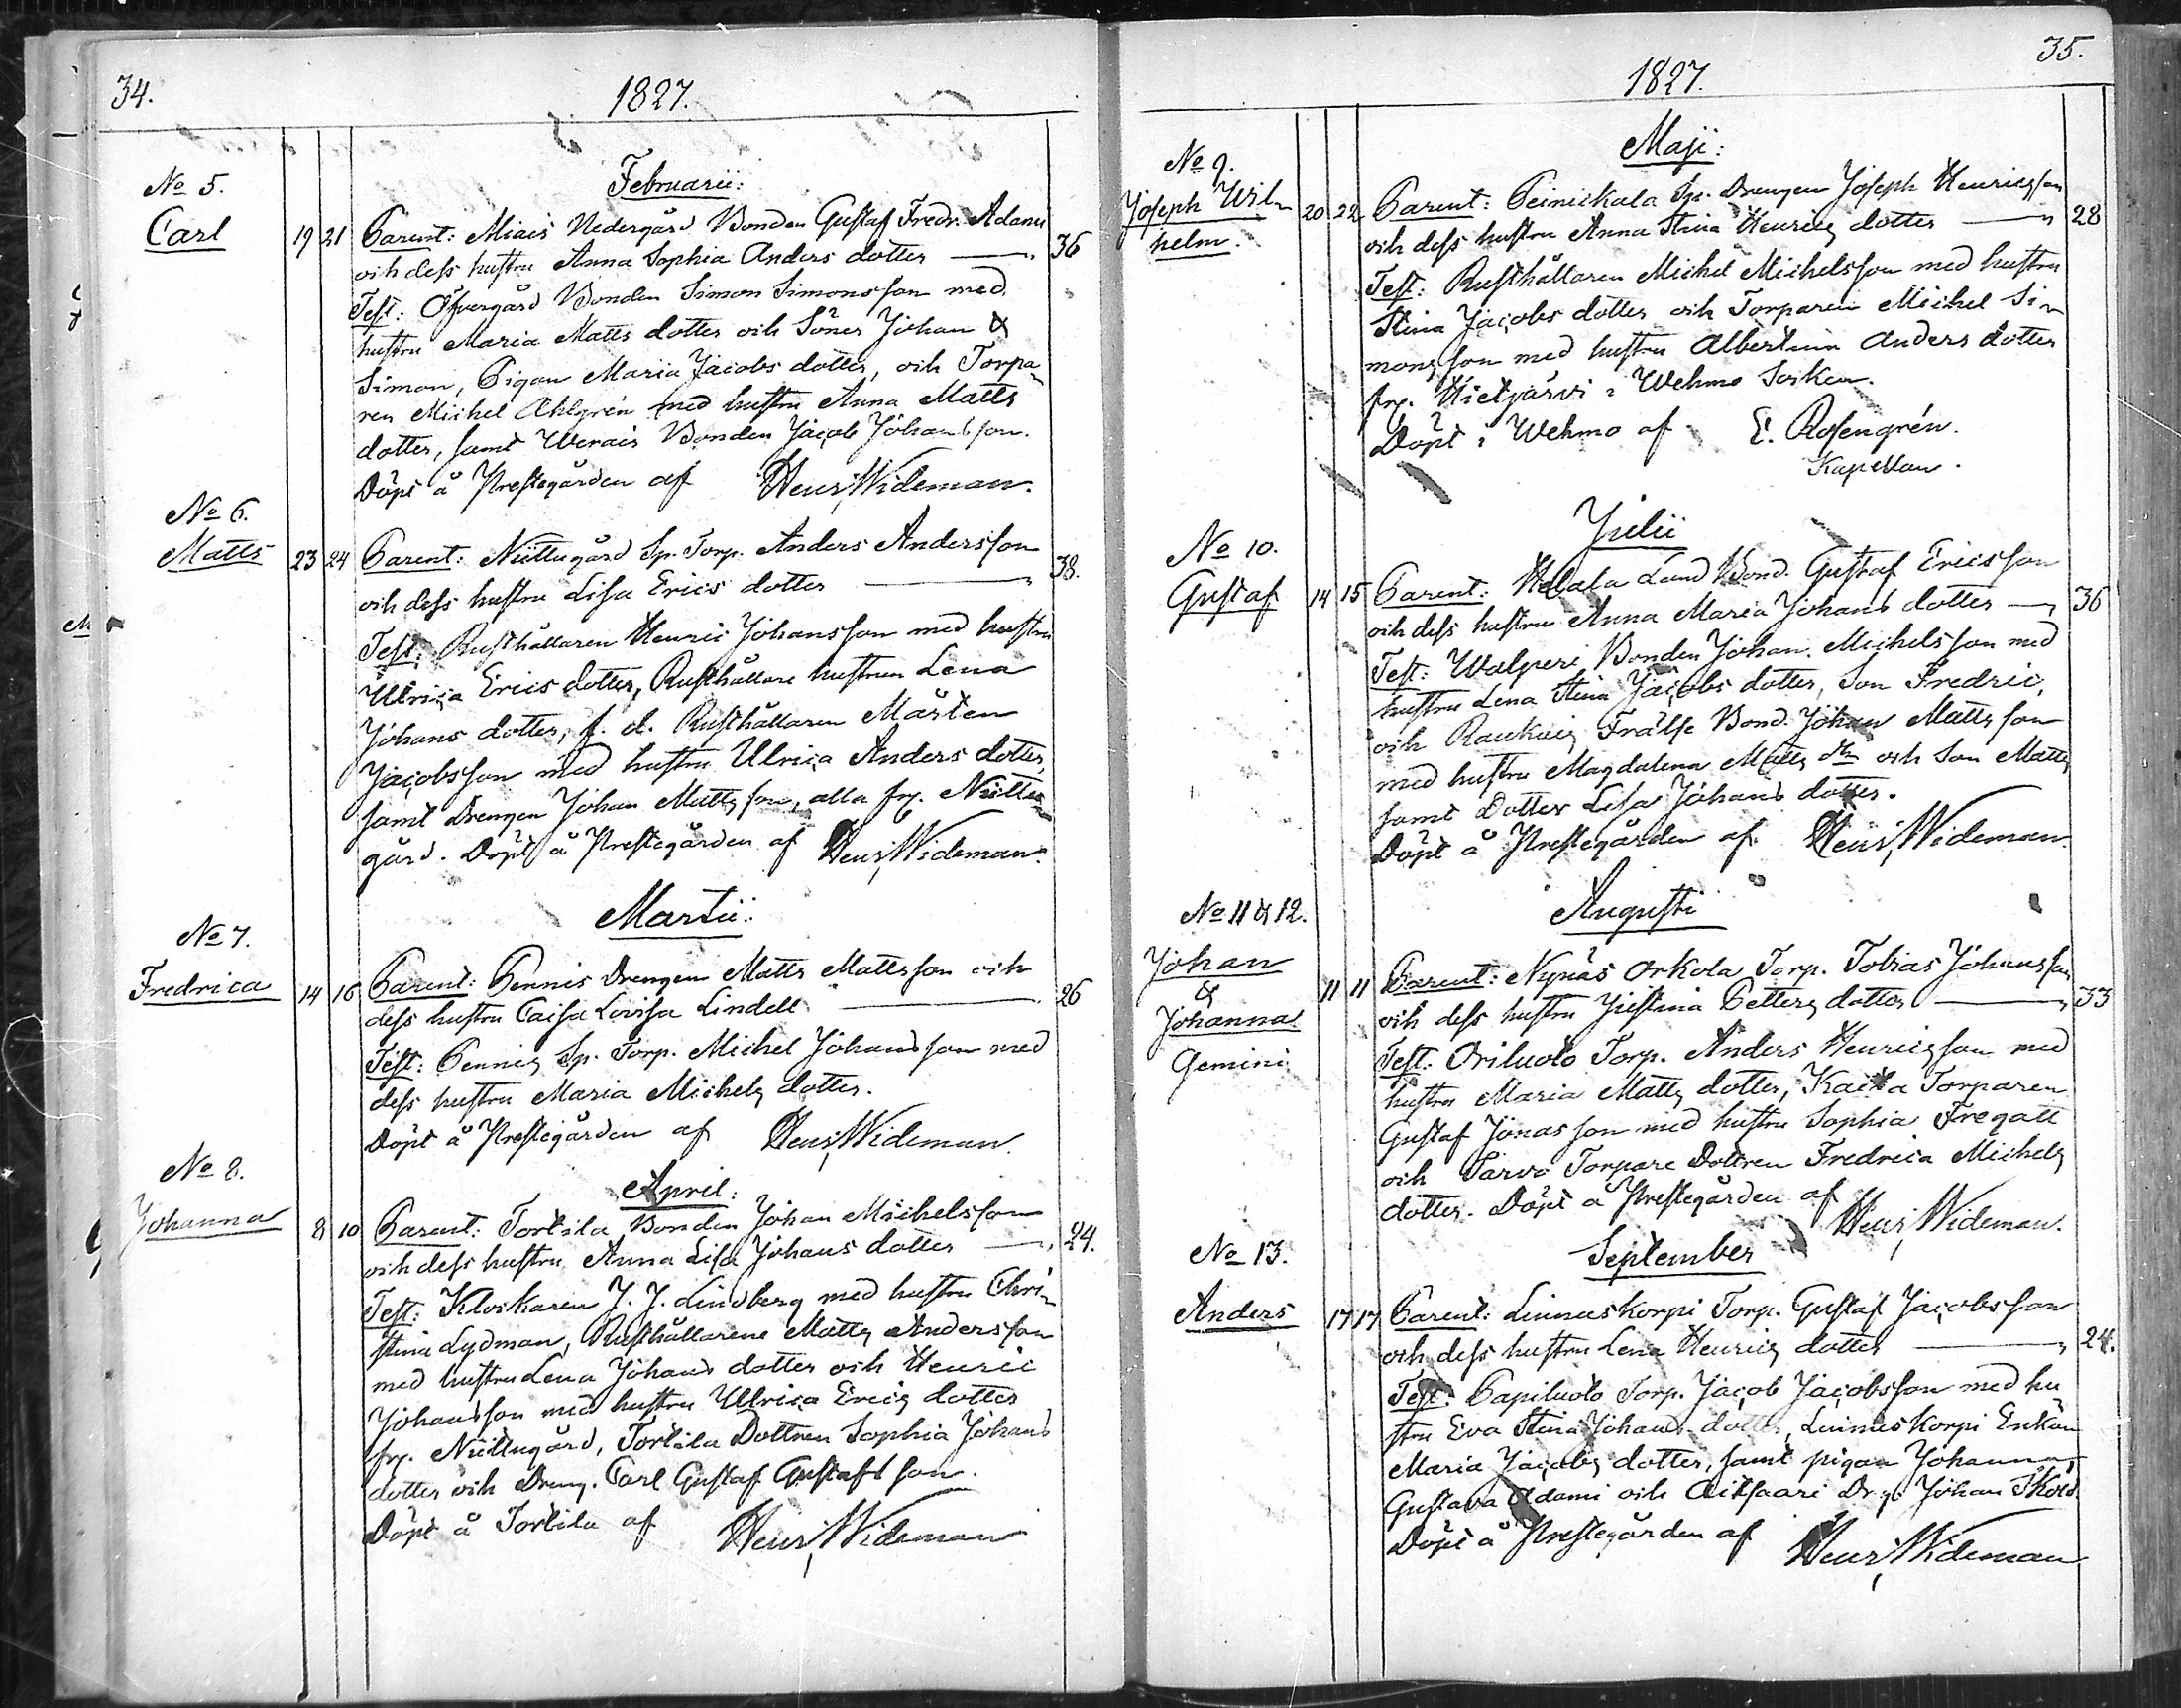 34.
1827.
Februarii:
No 5.
Carl
19 21 Parent: Miais Nedergård Bonden Gustaf Fredr. Adami 36
och dess hustru Anna Sophia Anders dotter
Test: Öfvergård Bonden Simon Simonsson med
hustru Maria Matts dotter och Söner Johan &
Simon, Pigan Maria Jacobs dotter, och Torpa-
ren Michel Ahlgrén med hustru Anna Matts
dotter, samt Werais Bonden Jacob Johansson.
Döpt å Prestegården af Henr. Wideman.
No 6.
Matts
23 24 Parent: Niittugård Sp. Torp. Anders Andersson 38.
och dess hustru Lisa Erics dotter
Test: Rusthållaren Henric Johansson med hustru
Ulrica Erics dotter, Rusthållare hustrun Lena
Johans dotter, f. d. Rusthållaren Mårten
Jacobsson med hustru Ulrica Anders dotter,
samt Drengen Johan Mattsson, alla fr. Niittu-
gård. Döpt å Prestegården af Henr. Wideman.
Martii:
No 7.
Fredrica
14 16 Parent: Pennis Drengen Matts Mattsson och 26
dess hustru Caisa Lovisa Lindell
Test: Pennis Sp. Torp. Michel Johansson med
dess hustru Maria Michels dotter.
Döpt å Prestegården af Henr. Wideman.
April:
No 8.
Johanna
8 10 Parent: Tortila Bonden Johan Michelsson 24.
och dess hustru Anna Lisa Johans dotter
Test: Klockaren J. J. Lindberg med hustru Chri-
stina Lydman, Rusthållarene Matts Andersson
med hustru Lena Johans dotter och Henric
Johansson med hustru Ulrica Erics dotter
fr. Niittugård, Tortila Dottren Sophia Johans
dotter och Dreng. Carl Gustaf Gustafsson.
Döpt å Tortila af Henr. Wideman
35.
1827.
Maji:
No 9.
Joseph Wil-
helm.
20 22 Parent: Peinikala Sp. Drengen Joseph Henricsson 28
och dess hustru Anna Stina Henrics dotter
Test: Rusthållaren Michel Michelsson med hustru
Stina Jacobs dotter och Torparen Michel Si-
monsson med hustru Albertina Anders dotter
fr. Hietjärvi i Wehmo Socken.
Döpt i Wehmo af E. Rosengrén.
Kapellan.
Julii
No 10.
Gustaf
14 15 Parent: Helala Land Bond. Gustaf Ericsson 36
och dess hustru Anna Maria Johans dotter
Test: Walperi Bonden Johan Michelsson med
hustru Lena Stina Jacobs dotter, Son Fredric,
och Raukais Frälse Bond. Johan Mattsson
med hustru Magdalena Matts dtr och Son Matts
samt Dotter Lisa Johans dotter.
Döpt å Prestegården af Henr. Wideman
Augusti
No 11 & 12.
Johan
&
Johanna
Gemini
11 11 Parent: Nynäs Orkola Torp. Tobias Johansson 33
och dess hustru Justina Petters dotter
Test: Oriluoto Torp. Anders Henricsson med
hustru Maria Matts dotter, Kaita Torparen
Gustaf Jonasson med hustru Sophia Fregatt
och Särvo Torpare Dottren Fredrica Michels
dotter. Döpt å Prestegården af
Henr. Wideman.
September
No 13.
Anders
17 17 Parent: Linnuskorpi Torp. Gustaf Jacobsson 24.
och dess hustru Lena Henrics dotter
Test: Papiluoto Torp. Jacob Jacobsson med hu
stru Eva Stina Johans dotter, Linnuskorpi Enkan
Maria Jacobs dotter, samt pigan Johanna
Gustava Adami och Aitsaari Dr. Johan Sköld.
Döpt å Prestegården af Henr. Wideman